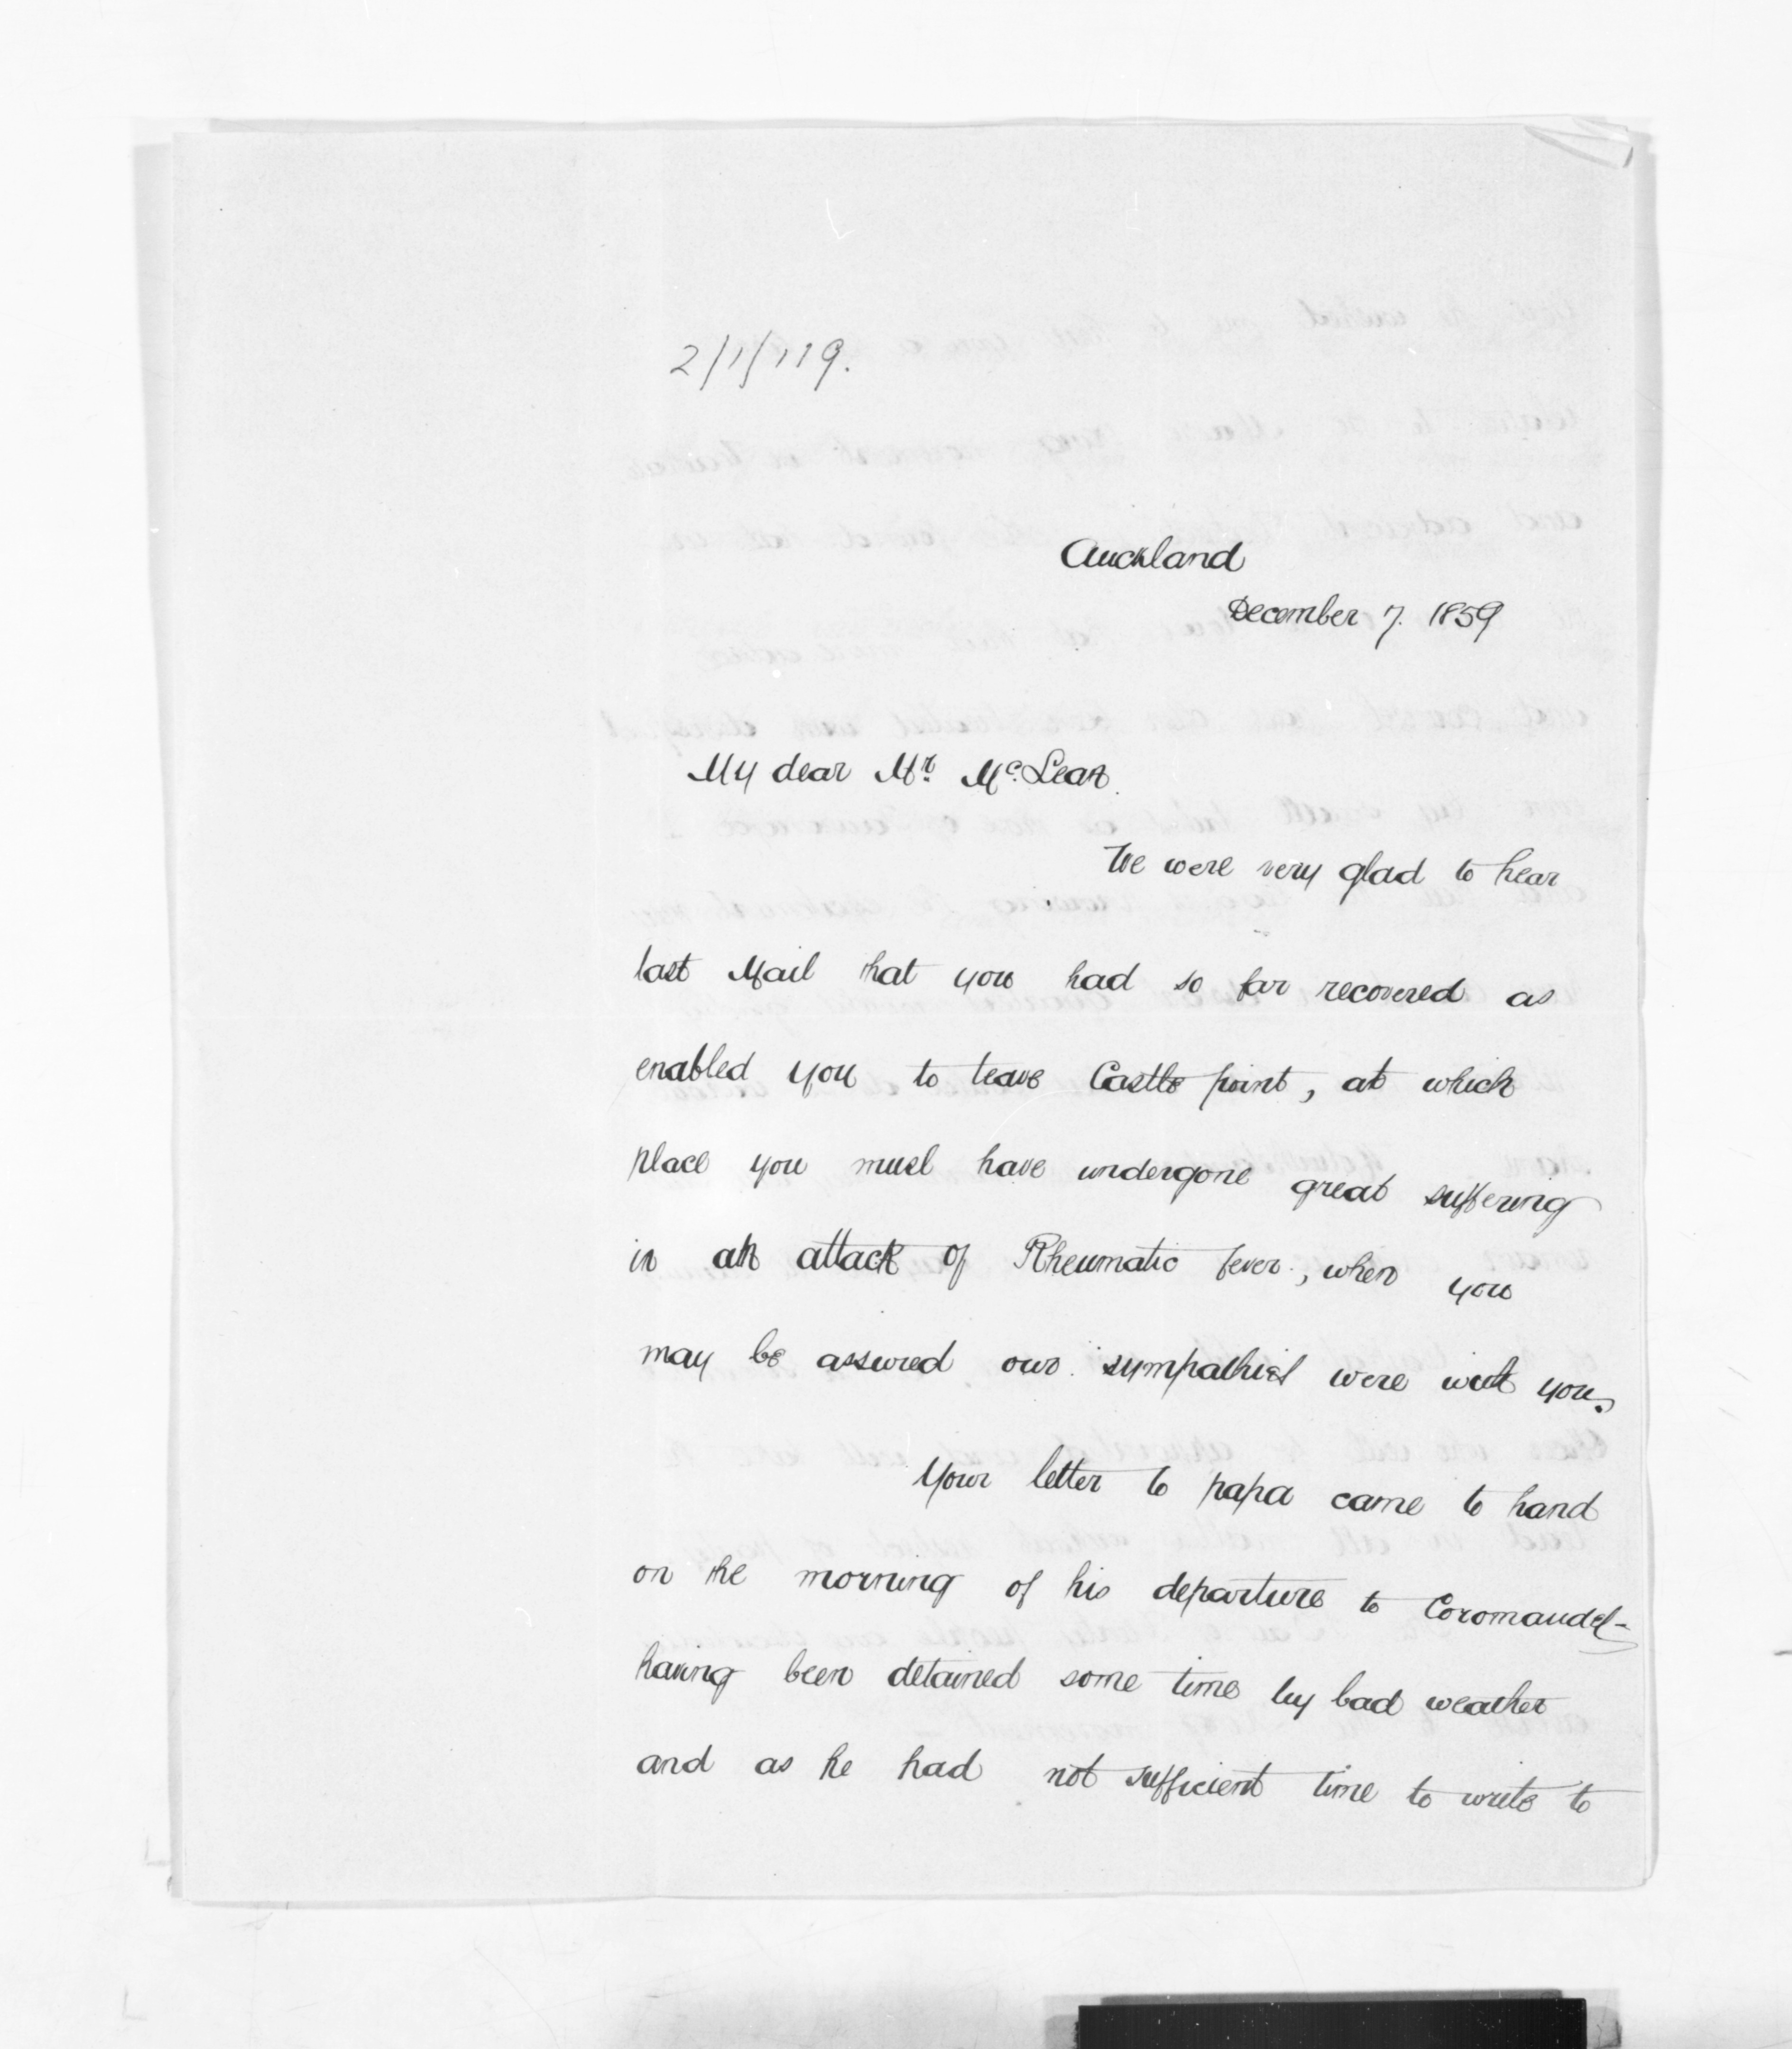 2/1/119.
Auckland
December 7. 1859
My dear Mr. Mc.Lean.
We were very glad to hear
last Mail that you had so far recovered as
enabled you to leave Castle point, at which
place you must have undergone great suffering
in an attack of Rheumatic fever, when you
may be assured our sympathies were with you.
Your letter to papa came to hand
on the morning of his departure to Coromandel-
having been detained some time by bad weather
and as he had not sufficient time to write to